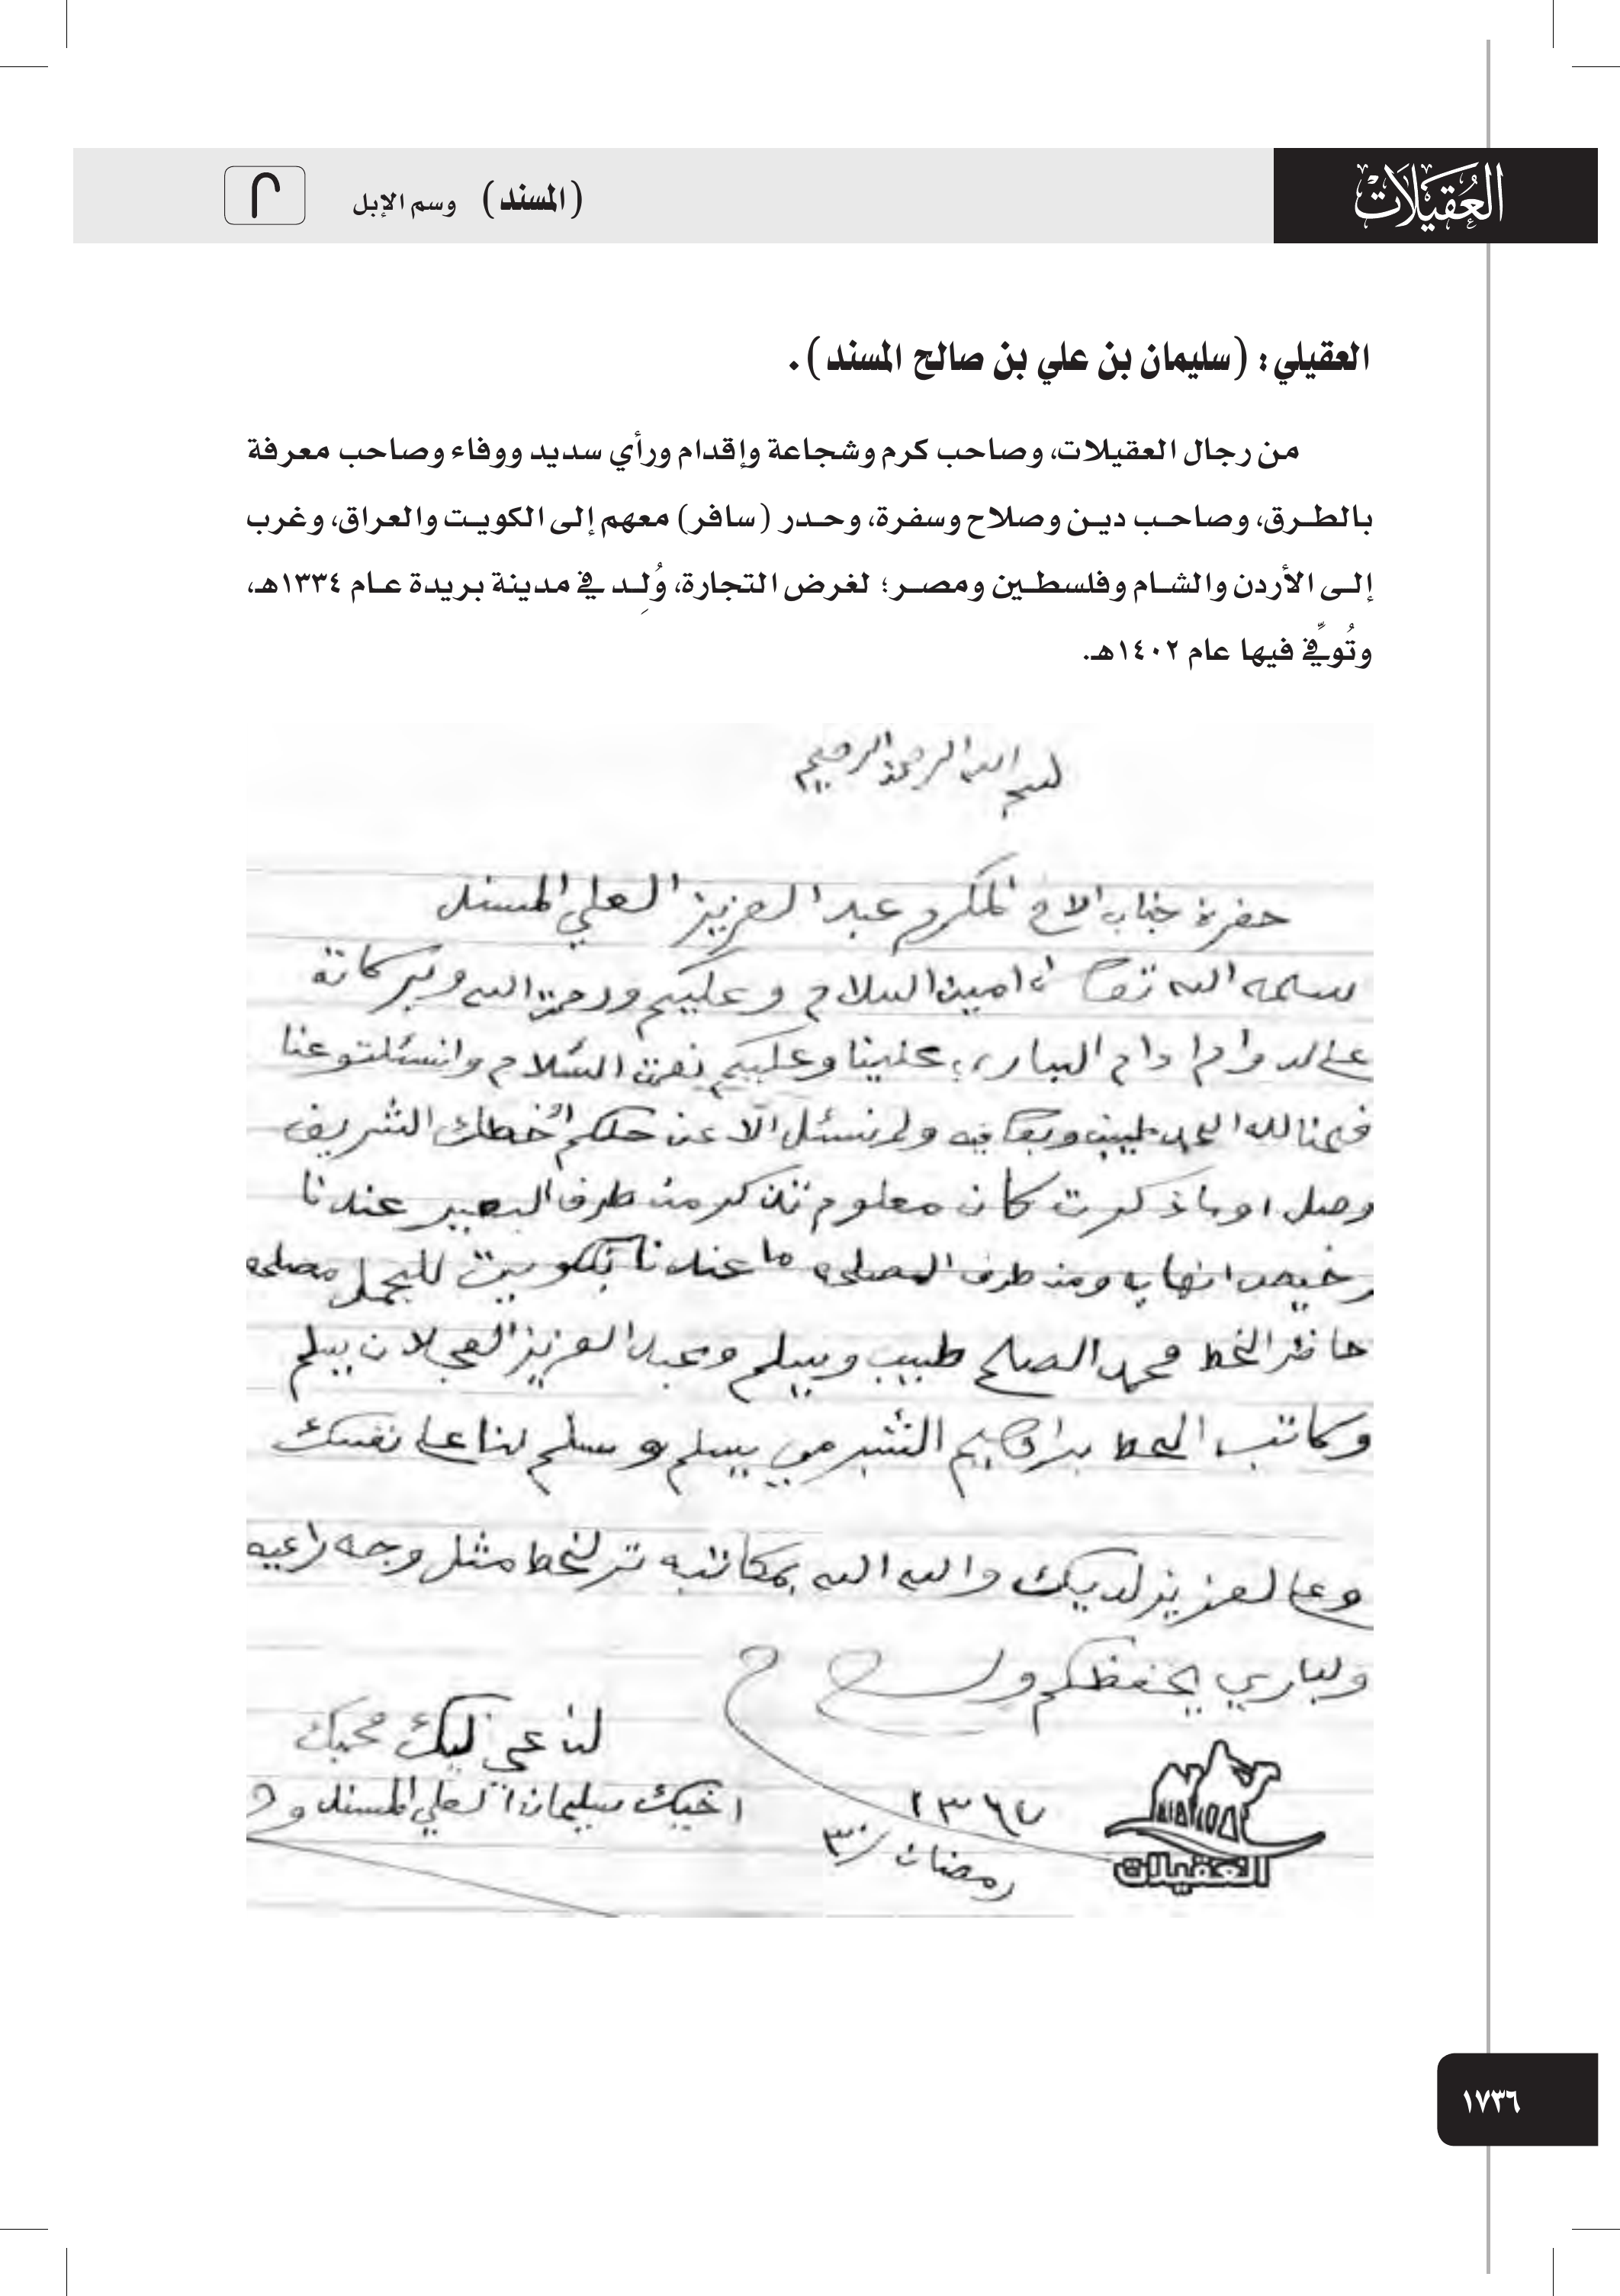 العُقيلات
(المسند) وسم الإبل
العقيلي: (سليمان بن علي بن صالح المسند).
من رجال العقيلات، وصاحب كرم وشجاعة وإقدام ورأي سديد ووفاء وصاحب معرفة
بالطرق، وصاحب دين وصلاح وسفرة، وحدر (سافر) معهم إلى الكويت والعراق، وغرب
إلى الأردن والشام وفلسطين ومصر؛ لغرض التجارة، وُلِد في مدينة بريدة عام ١٣٣٤هـ،
وتُوفِّي فيها عام ١٤٠٢هـ.
بسم الله الرحمن الرحيم
حضرة جناب الاخ المكرم عبد العزيز العلي المسند
سلمه الله تعالى امين السلام وعليكم ورحمت الله وبركاته
على الدوام دام الباري علينا وعليكم نعمت السلام وانسئلتو عنا
فحنا لله الحمد طيبين وبعافيه ولم نسئل الا عن حلكم الخطك الشريف
وصل اوماذكرت كان معلوم تذكر من طرف البعير عندنا
رخيص انهاب ومن طرف المصلحه ما عندنا بلكويت للجمل مصلحه
حاضر الخط محمد الصلح طيب ويسلم وعبد العزيز العجلان يسلم
وكاتب الخط براهيم الشبرمي يسلم وسلم لنا على نفسك
وعالعزيز لديك والله الله بمكاتبه تر لخط مثل وجه راعيه
ولباري يحفظكم و
محبك
اخيك سليمان العلي المسند
١٣٦٧
رمضان ٣
العقيلات
١٧٣٦